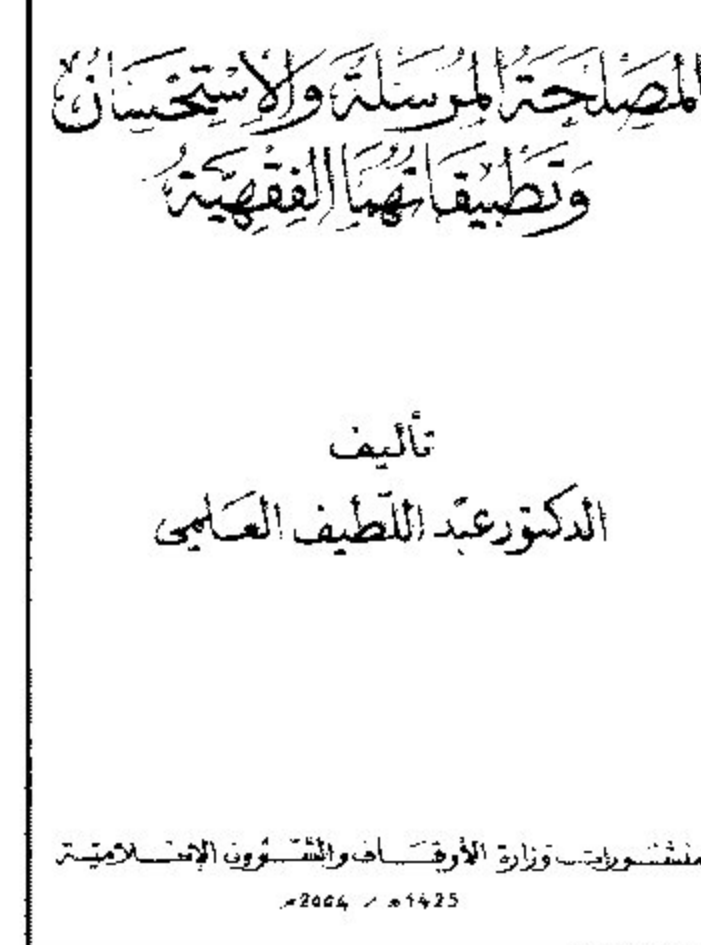 المصلحة المرسلة والاستحسان
وتطبيقاتهما الفقهية
تأليف
الدكتور عبد اللطيف العلمي
منشورات وزارة الأوقاف والشؤون الإسلامية
1425هـ / 2004م